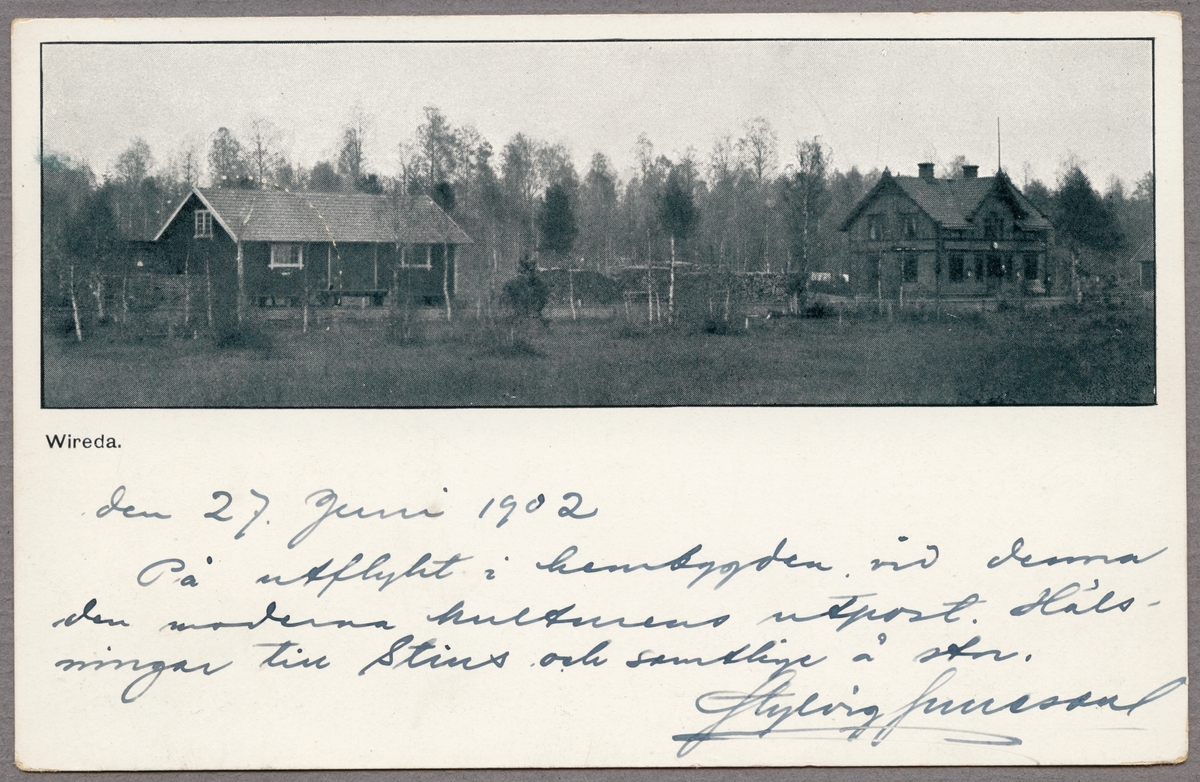 Wireda.
den 27. Juni 1902
På utflykt i hembygden vid denna
den moderna kulturens utpost. Häls-
ningar till Stins och samtlige å stn.